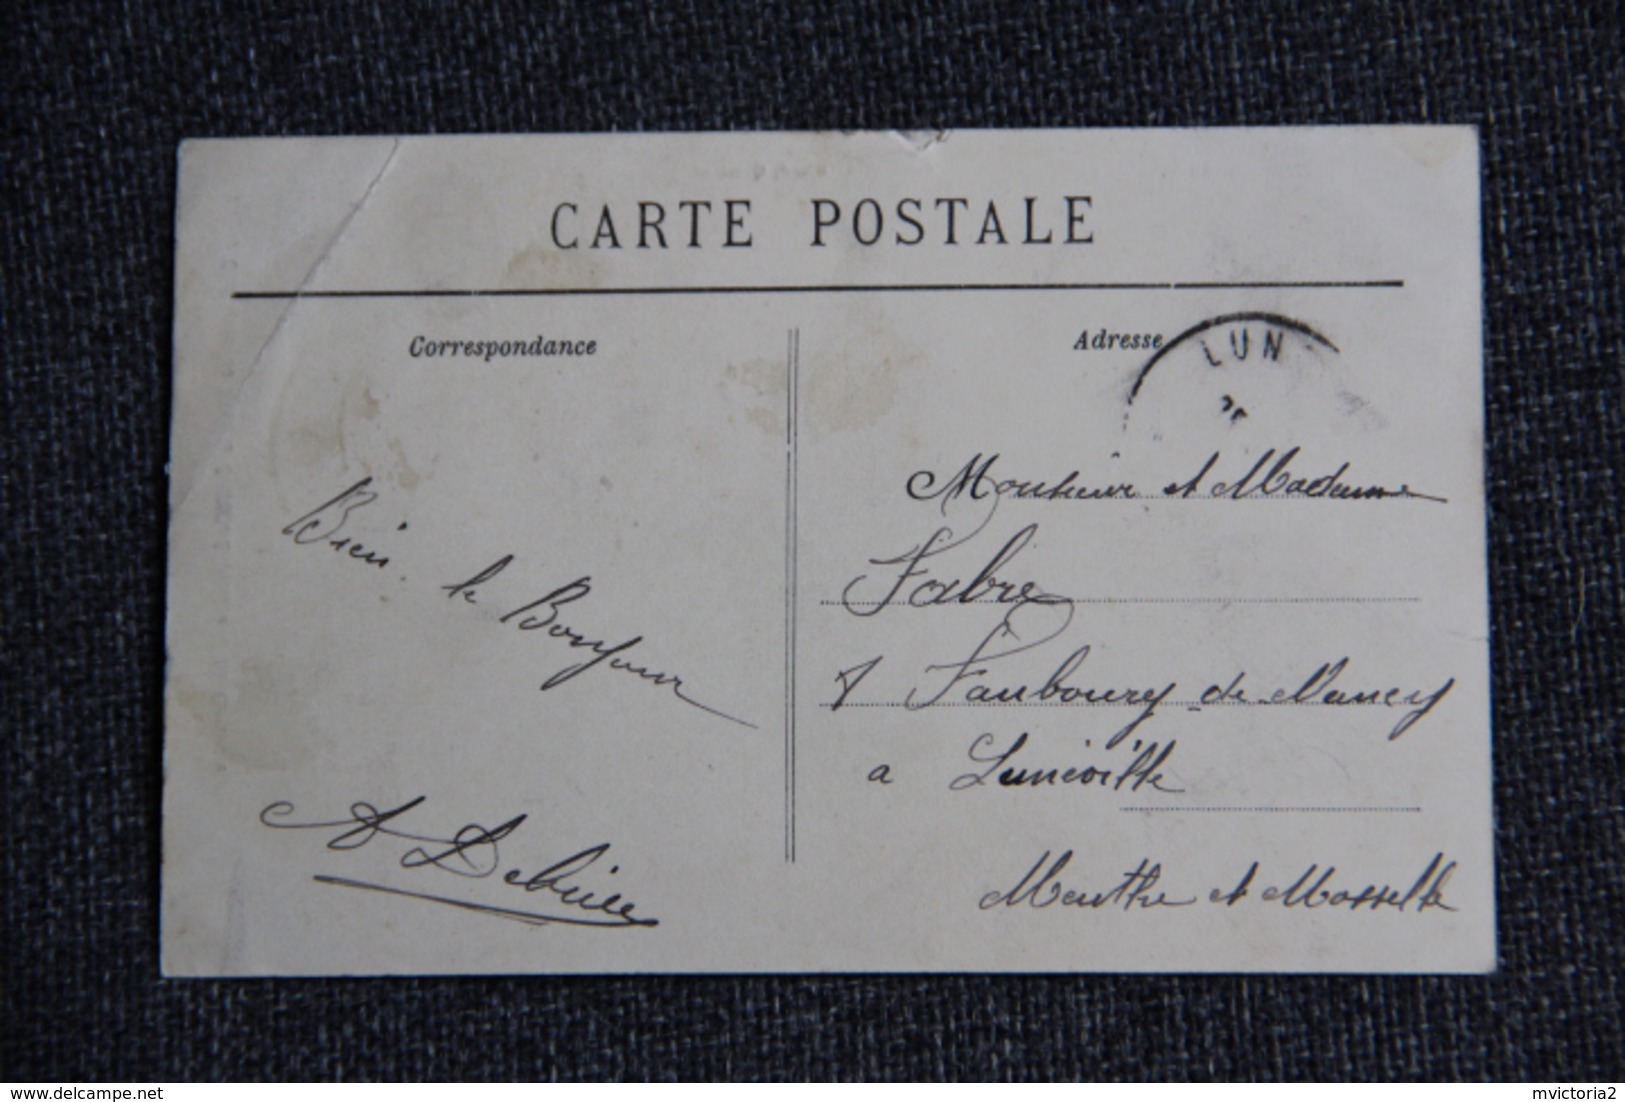 CARTE POSTALE
Correspondance
Adresse
LUN
Bien le Bonjour
A
Monsieur et Madame
Fabre
Faubourg de Nancy
a Lunéville
Meurthe et Moselle
delcampe.com
mvictoria2